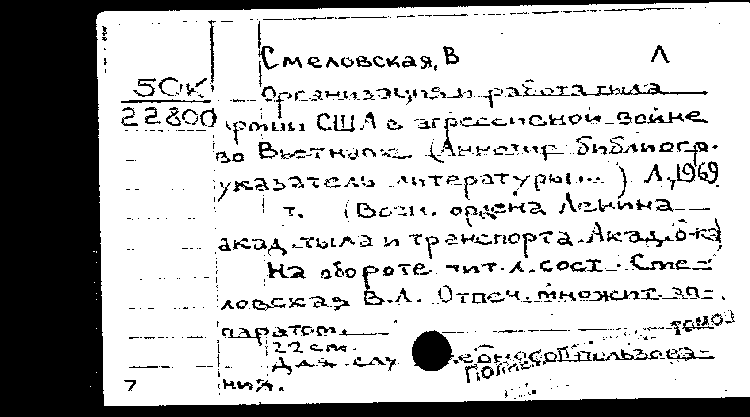 Смеловская, В Л
50К
22800
Организация и работа тыла
армии США в агрессивной войне
во Вьетнаме. (Аннотир. библиогр.
указатель литературы...) Л., 1969
т. (Воен. ордена Ленина
акад. тыла и транспорта. Акад. б-ка)
На обороте тит. л. сост. Сме-
ловская В.Л. Отпеч. множит. ап-
паратом.
22 см.
Для служебного пользова-
ния.
томов
7